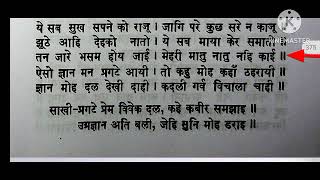 ये सब सुख सपने को राजू। जागि परे कुछ सरे न काजू॥
झूठे आहि देहको नातो। ये सब माया केर समाता॥
तन जारे भसम होय जाई। मेहरी मातु नातु नहिं काई॥
ऐसो ज्ञान मन प्रगटे आयी। तो कहु मोह कहाँ ठहरायी॥
ज्ञान मोह दल देखी दाही। कदली गर्व विचाला चाही॥
साखी-प्रगटे प्रेम विवेक दल, कहे कबीर समझाइ॥
उग्रज्ञान अति बली, जेहि मुनि मोह डराइ॥
KINEMASTER